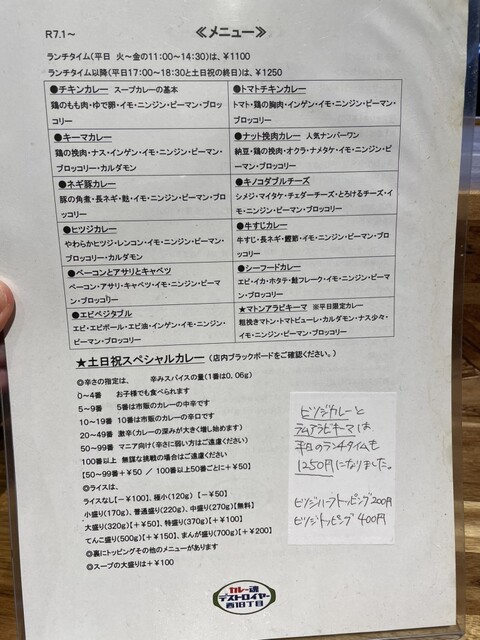 R7.1～
≪メニュー≫
ランチタイム(平日　火～金の11:00～14:30)は、¥1100
ランチタイム以降(平日17:00～18:30と土日祝の終日)は、¥1250
●チキンカレー　スープカレーの基本
鶏のもも肉・ゆで卵・イモ・ニンジン・ピーマン・ブロッ
コリー
●トマトチキンカレー
トマト・鶏の胸肉・インゲン・イモ・ニンジン・ピーマ
ン・ブロッコリー
●キーマカレー
鶏の挽肉・ナス・インゲン・イモ・ニンジン・ピーマン・
ブロッコリー・カルダモン
●ナット挽肉カレー　人気ナンバーワン
納豆・鶏の挽肉・オクラ・ナメタケ・イモ・ニンジン・ピ
ーマン・ブロッコリー
●ネギ豚カレー
豚の角煮・長ネギ・麩・イモ・ニンジン・ピーマン・ブロ
ッコリー
●キノコダブルチーズ
シメジ・マイタケ・チェダーチーズ・とろけるチーズ・イ
モ・ニンジン・ピーマン・ブロッコリー
●ヒツジカレー
やわらかヒツジ・レンコン・イモ・ニンジン・ピーマン・
ブロッコリー・カルダモン
●牛すじカレー
牛すじ・長ネギ・鰹節・イモ・ニンジン・ピーマン・ブロ
ッコリー
●ベーコンとアサリとキャベツ
ベーコン・アサリ・キャベツ・イモ・ニンジン・ピーマ
ン・ブロッコリー
●シーフードカレー
エビ・イカ・ホタテ・鮭フレーク・イモ・ニンジン・ピー
マン・ブロッコリー
●エビベジタブル
エビ・エビボール・エビ油・インゲン・イモ・ニンジン・
ピーマン・ブロッコリー
★マトンアラビキーマ　※平日限定カレー
粗挽きマトン・トマトピューレ・カルダモン・ナス少々・
イモ・ニンジン・ピーマン・ブロッコリー
★土日祝スペシャルカレー（店内ブラックボードをご確認ください。）
◎辛さの指定は、　辛みスパイスの量(1番は0.06g)
0～4番　お子様でも食べられます
5～9番　5番は市販のカレーの中辛です
10～19番　10番は市販のカレーの辛口です
20～49番　激辛(カレーの深みが大きく増し始めます)
50～99番　マニア向け(辛さに弱い方はご遠慮ください)
100番以上　無謀な挑戦の場合はご遠慮ください
【50～99番+¥50 / 100番以上50番ごとに+¥50】
◎ライスは、
ライスなし【－¥100】、極小(120g)【－¥50】
小盛り(170g)、普通盛り(220g)、中盛り(270g)【無料】
大盛り(320g)【+¥50】、特盛り(370g)【+¥100】
てんこ盛り(500g)【+¥150】、まんが盛り(700g)【+¥200】
◎裏にトッピングその他のメニューがあります
◎スープの大盛りは+¥100
ヒツジカレーと
ラムアラビキーマは
平日のランチタイムも
1250円になりました。
ヒツジハーフトッピング200円
ヒツジトッピング400円
カレー魂
デストロイヤー
西18丁目